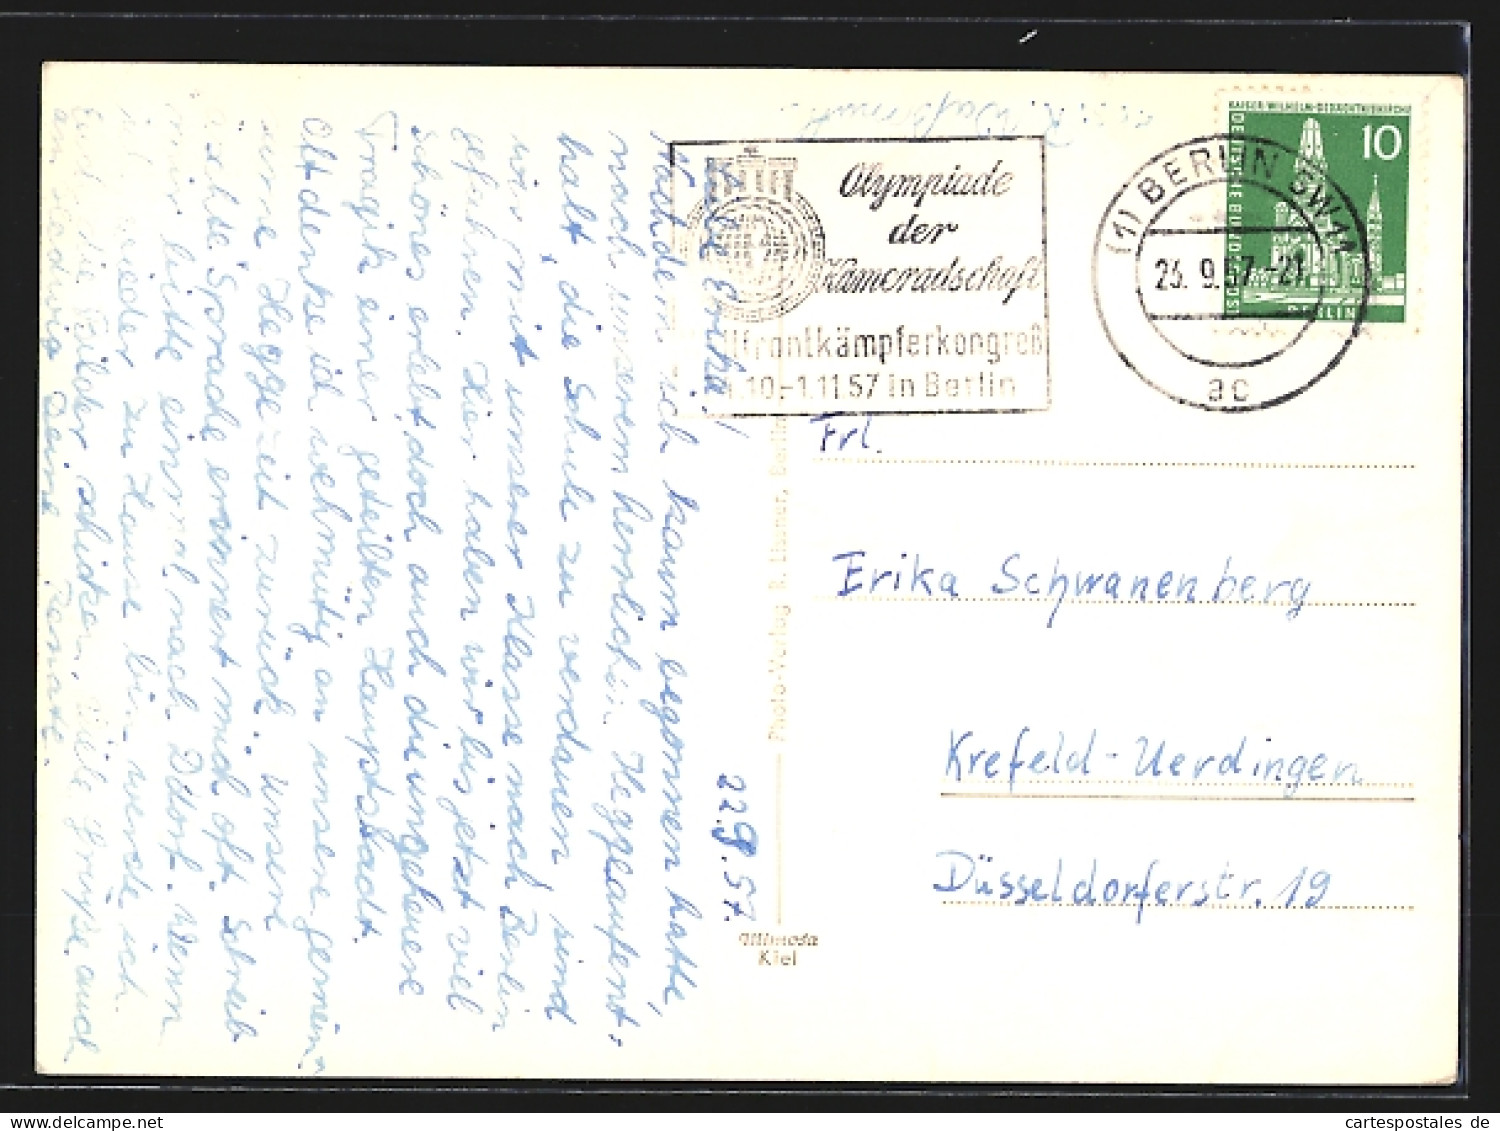 22.9.57.
Liebe Erika!
Nachdem ich kaum begonnen hatte,
nach unserem herrlichen Heggeaufent-
halt, die Schule zu verdauen, sind
wir mit unserer Klasse nach Berlin
gefahren. Hier haben wir bis jetzt viel
schönes erlebt doch auch die ungeheure
Tragik einer geteilten Hauptstadt.
Oft denke ich wehmütig an unsere gemein-
same Heggezeit zurück. Unsere
echte Sprache erinnert mich oft. Schreib
mir bitte einmal nach Ddorf. Wenn
ich wieder zu Hause bin werde ich
Euch die Bilder schicken. Viele Grüße auch
an Deine Renate.
Olympiade
der
Kameradschaft
frontkämpferkongreß
10.-1.11.57 in Berlin
(1) BERLIN SW 11
23. 9. 57. -21
ac
KAISER-WILHELM-GEDÄCHTNISKIRCHE
10
DEUTSCHE BUNDESPOST
BERLIN
Frl.
Erika Schwanenberg
Krefeld-Uerdingen
Düsseldorferstr. 19
Photo-Verlag R. Lisner, Berlin
Mimosa
Kiel
cartespostales de